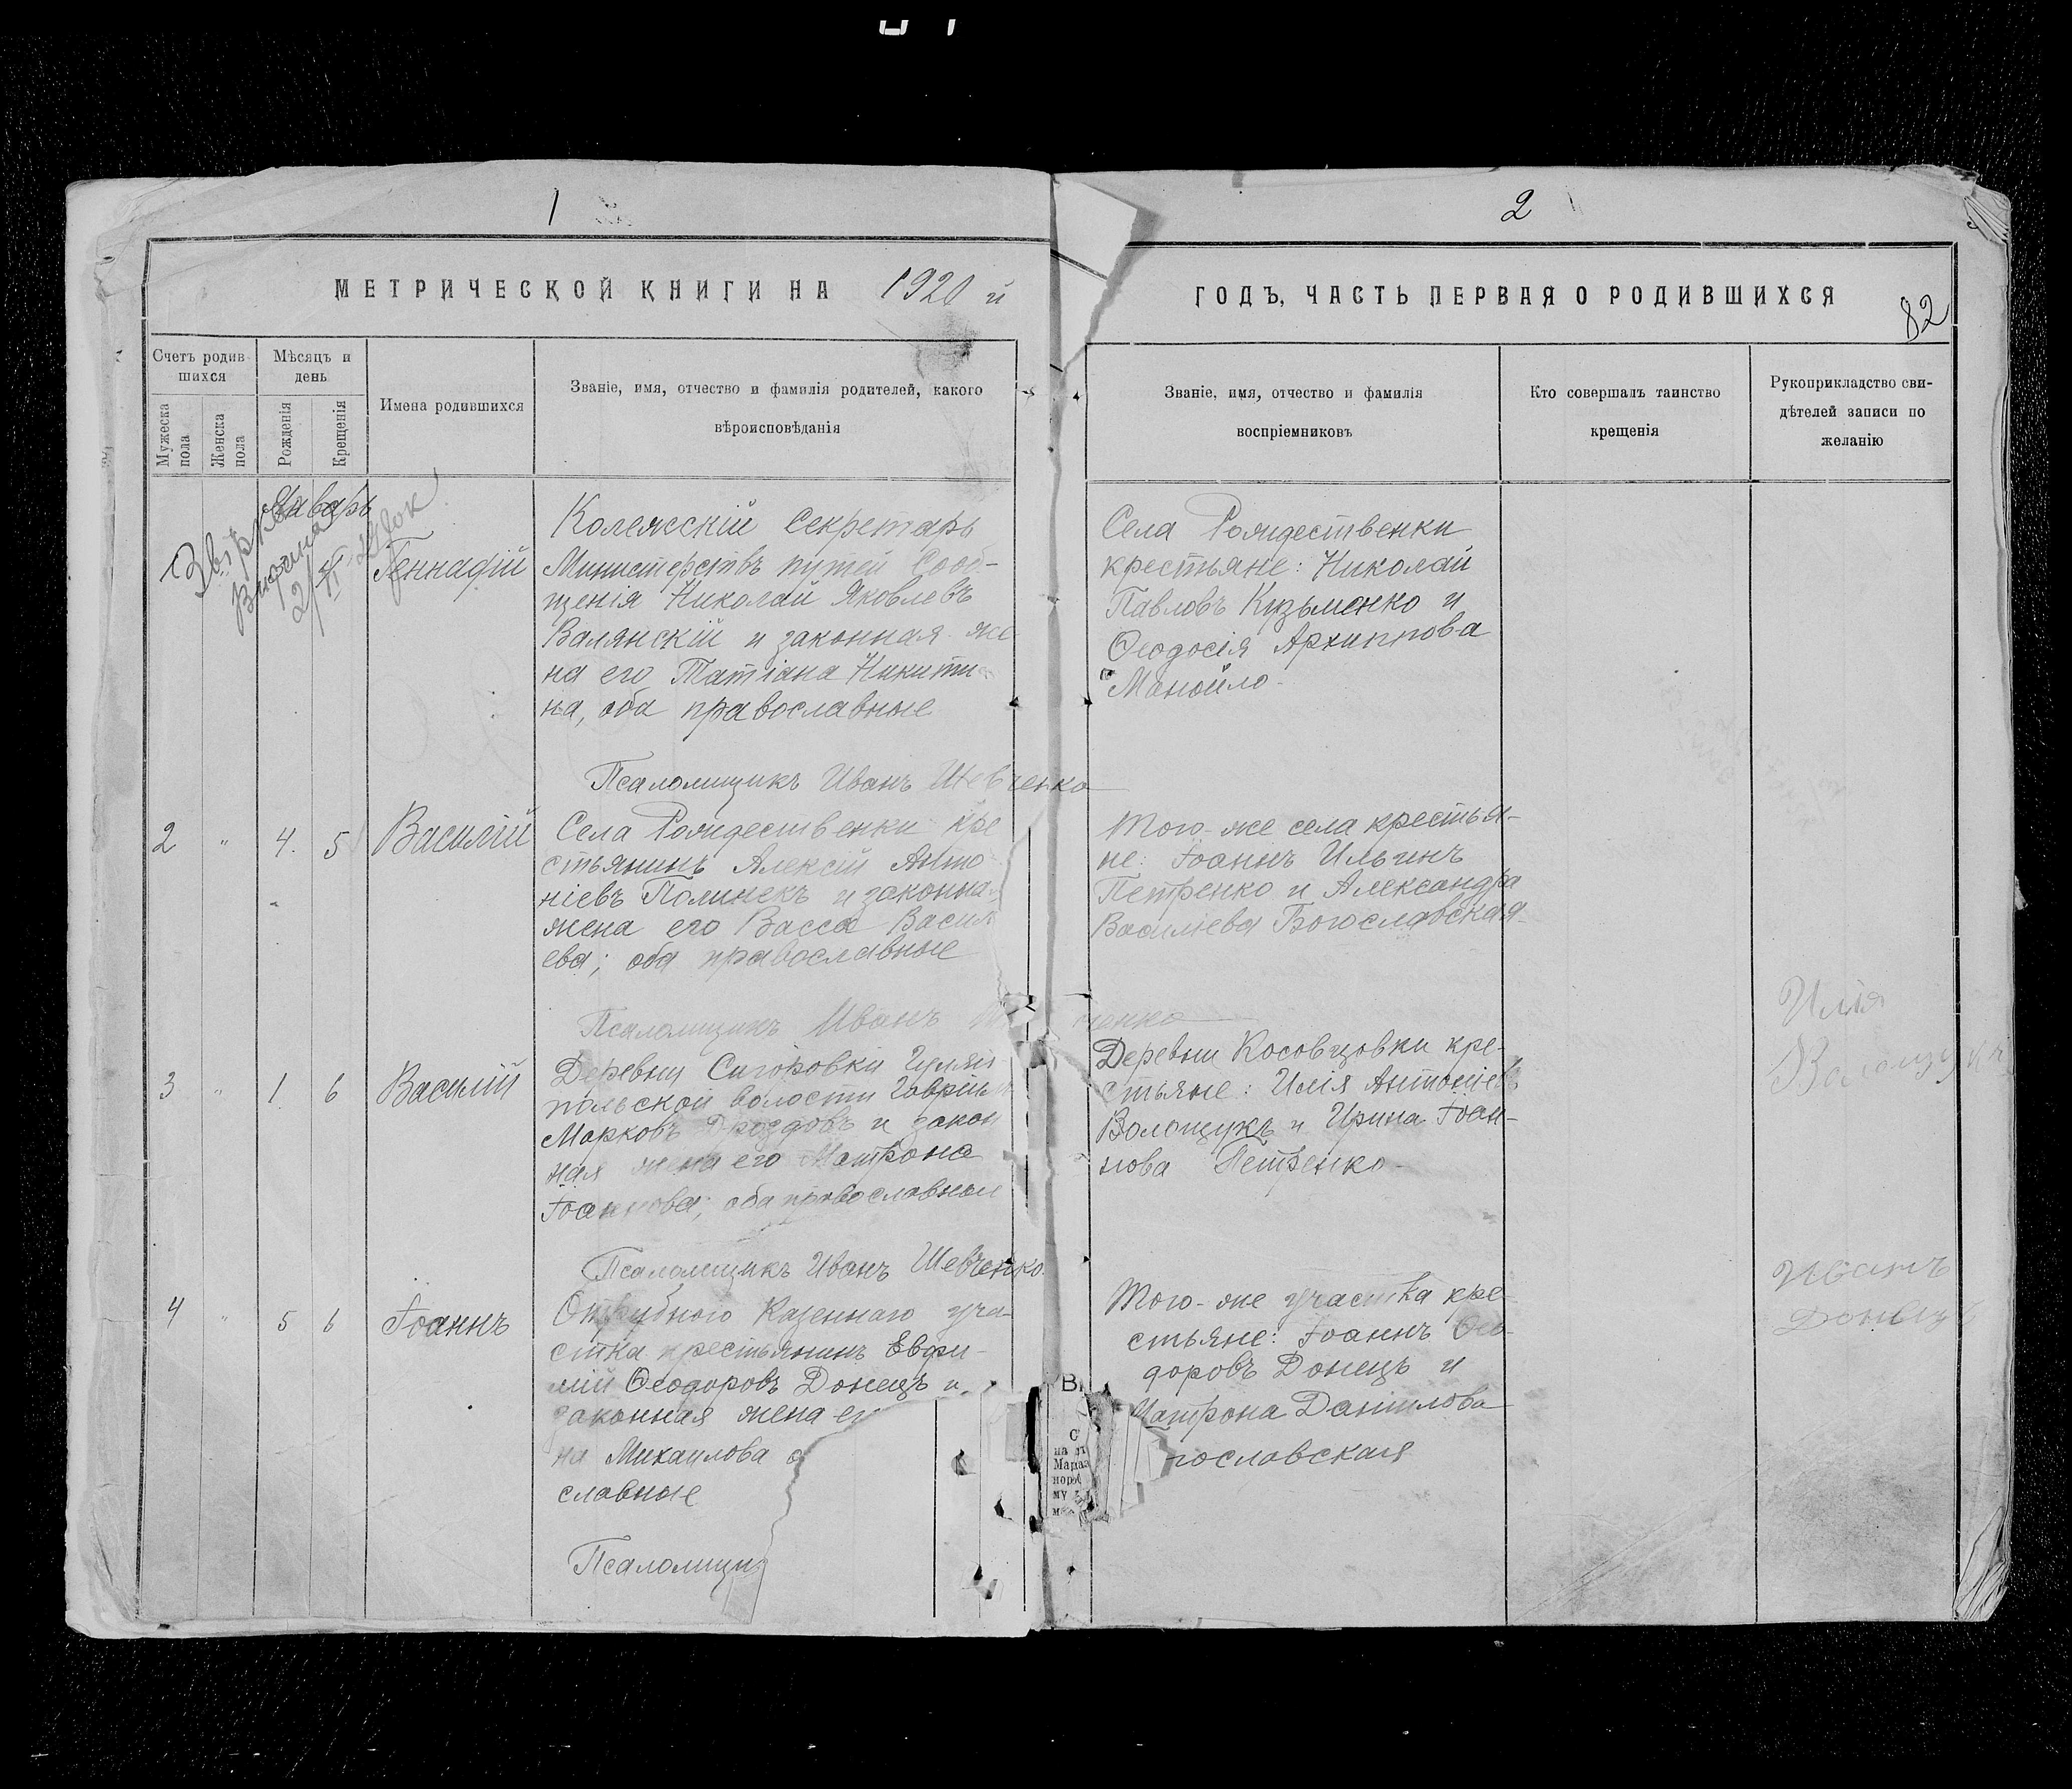 1
2
МЕТРИЧЕСКОЙ КНИГИ НА 1920 й
ГОДЪ, ЧАСТЬ ПЕРВАЯ О РОДИВШИХСЯ
82
Счетъ родив-
шихся
Мужеска пола
Женска пола
Мѣсяцъ и
день
Рожденія
Крещенія
Имена родившихся
Званіе, имя, отчество и фамилія родителей, какого
вѣроисповѣданія
Званіе, имя, отчество и фамилія
воспріемниковъ
Кто совершалъ таинство
крещенія
Рукоприкладство сви-
дѣтелей записи по
желанію
Январь
Геннадій
Колежскій Секретарь
Министерствъ путей Сооб-
щенія Николай Яковлевъ
Валянскій и законная же
на его Татіана Никити
на, оба православные
Псаломщикъ Иванъ Шевченко
Села Рождественки
крестьяне: Николай
Павловъ Кузьменко и
Ѳеодосія Архиппова
Манойло
2 " 4. 5 Василій
Села Рождественки кре
стьянинъ Алексій Анто
ніевъ Полинекъ и законная
жена его Васса Васил
ева; оба православные
Псаломщикъ Иванъ
ченко
Того-же села крестья-
не: Іоаннъ Ильинъ
Петренко и Александра
Василіева Богославская
3 " 1. 6 Василій
Деревни
польской волости Гавріилъ
Марковъ Дроздовъ и закон
ная жена его Матрона
Іоаннова; оба православные
Псаломщикъ Иванъ Шевченко
Деревни Косовцовки кре-
стьяне: Илія Антоніевъ
Волощукъ и Ирина Іоан-
нова Петренко
Илія
Волощукъ
4 " 5 6 Іоаннъ
Отрубного Казеннаго уча-
стка крестьянинъ Евфи-
мій Ѳеодоровъ Донецъ и
законная жена ег
на Михаилова о
славные
Псаломщи
Того-же участка кре-
стьяне: Іоаннъ Ѳео-
доровъ Донецъ и
Матрона Даніилова
гославская
Иванъ
Донецъ